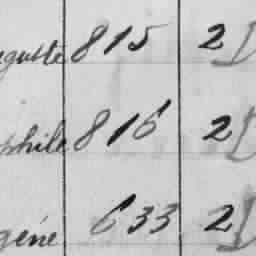 guste 815 2 D
phile 816 2 D
gène 633 2 D